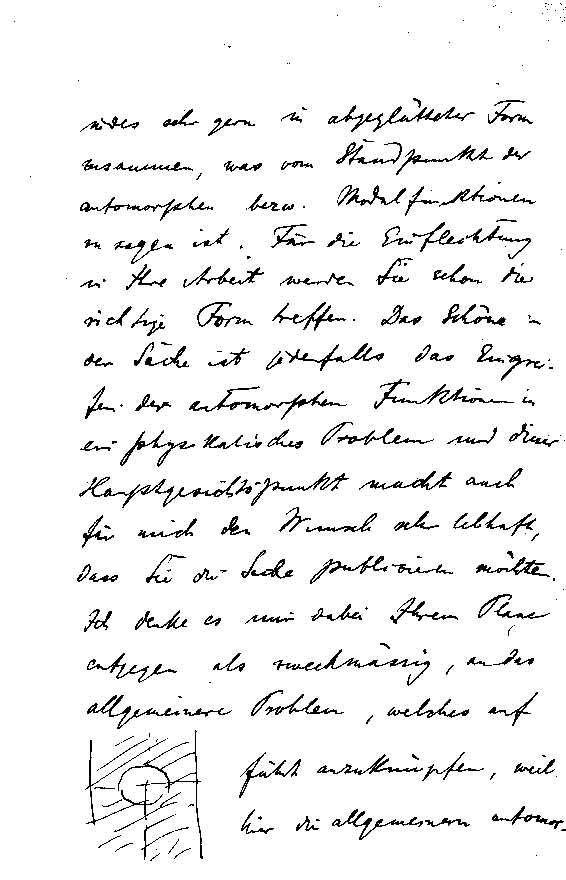 indes sehr gern in abgeglätteter Form
zusammen, was vom Standpunkt der
automorphen bezw. Modulfunktionen
zu sagen ist. Für die Einflechtung
in Ihre Arbeit werden Sie schon die
richtige Form treffen. Das Schöne in
der Sache ist jedenfalls das Eingrei-
fen der automorphen Funktionen in
ein physikalisches Problem und dieser
Hauptgesichtspunkt macht auch
für mich den Wunsch sehr lebhaft,
dass Sie die Sache publicieren möchten.
Ich denke es mir dabei Ihrem Plane
entgegen als zweckmässig, an das
allgemeinere Problem, welches auf
führt anzuknüpfen, weil
hier die allgemeineren automor-